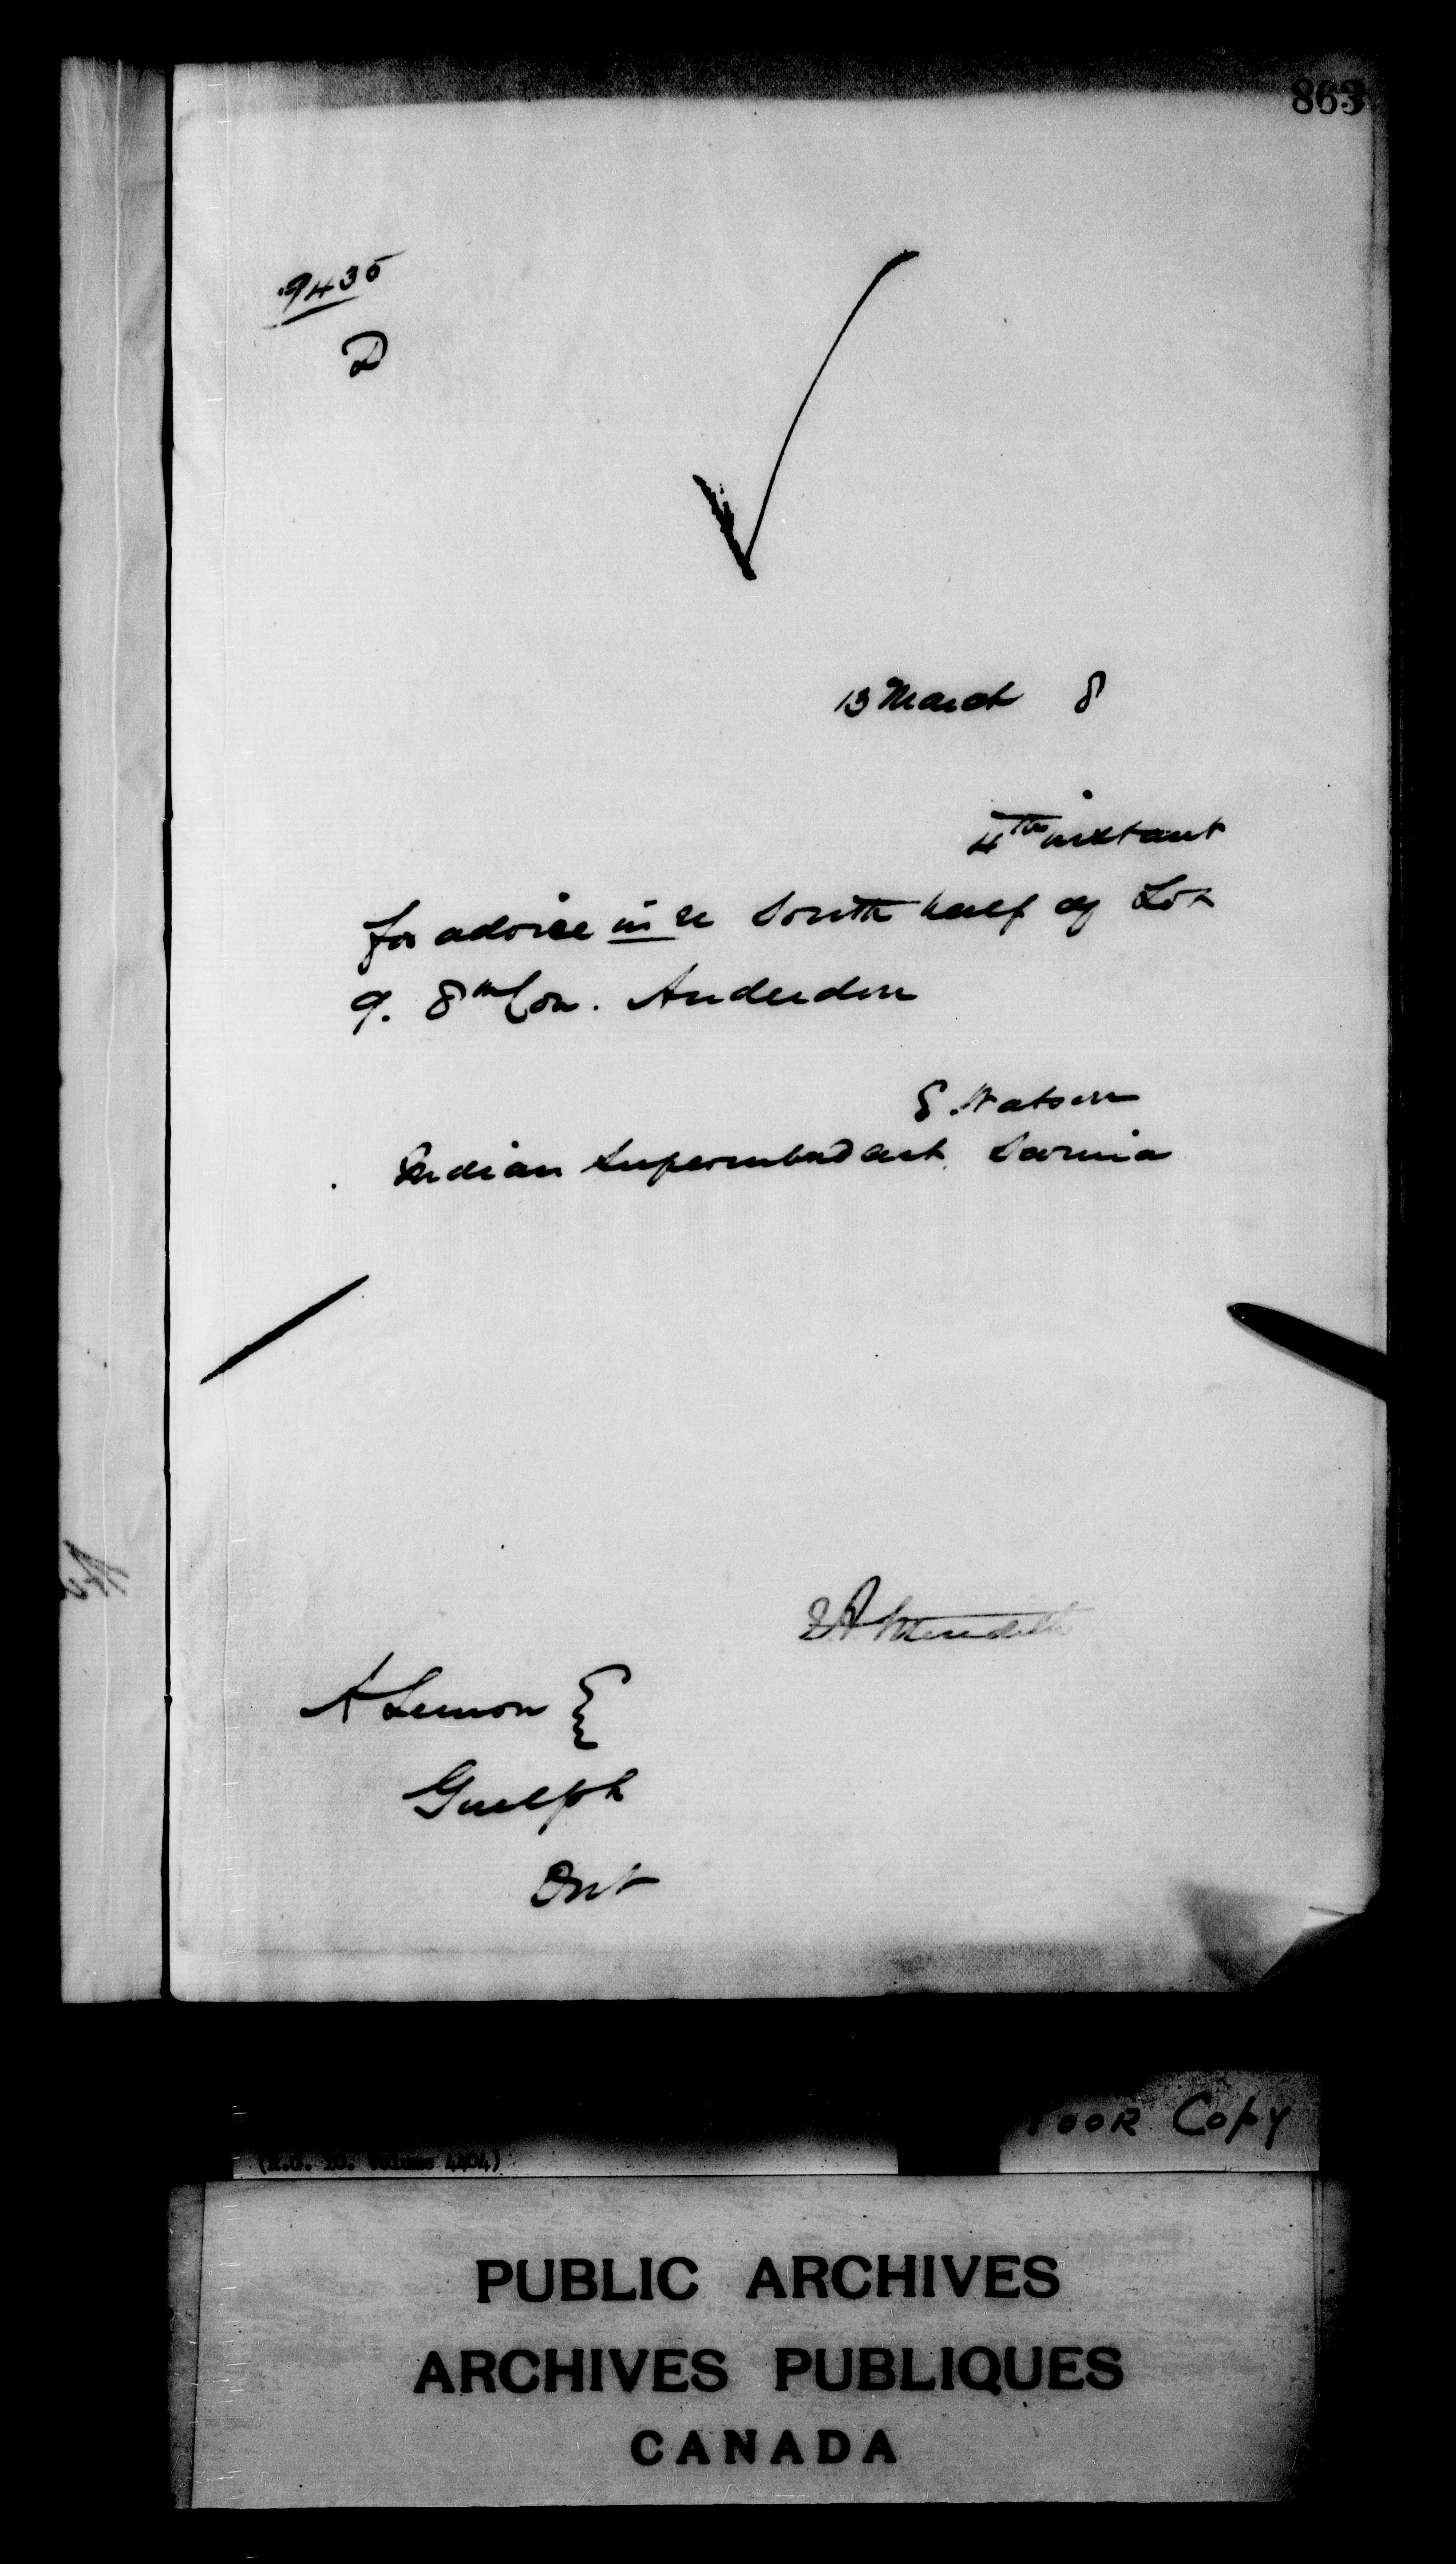 863
9435
D
13 March 8
4th instant
for advice in re South half of Lot
9. 8th Con. Anderdon
E. Watson
Indian Superintendent Sarnia
E A Meredith
A Lemon
Guelph
Ont
Poor Copy
(R.G. 10. Volume 4404)
PUBLIC ARCHIVES
ARCHIVES PUBLIQUES
CANADA